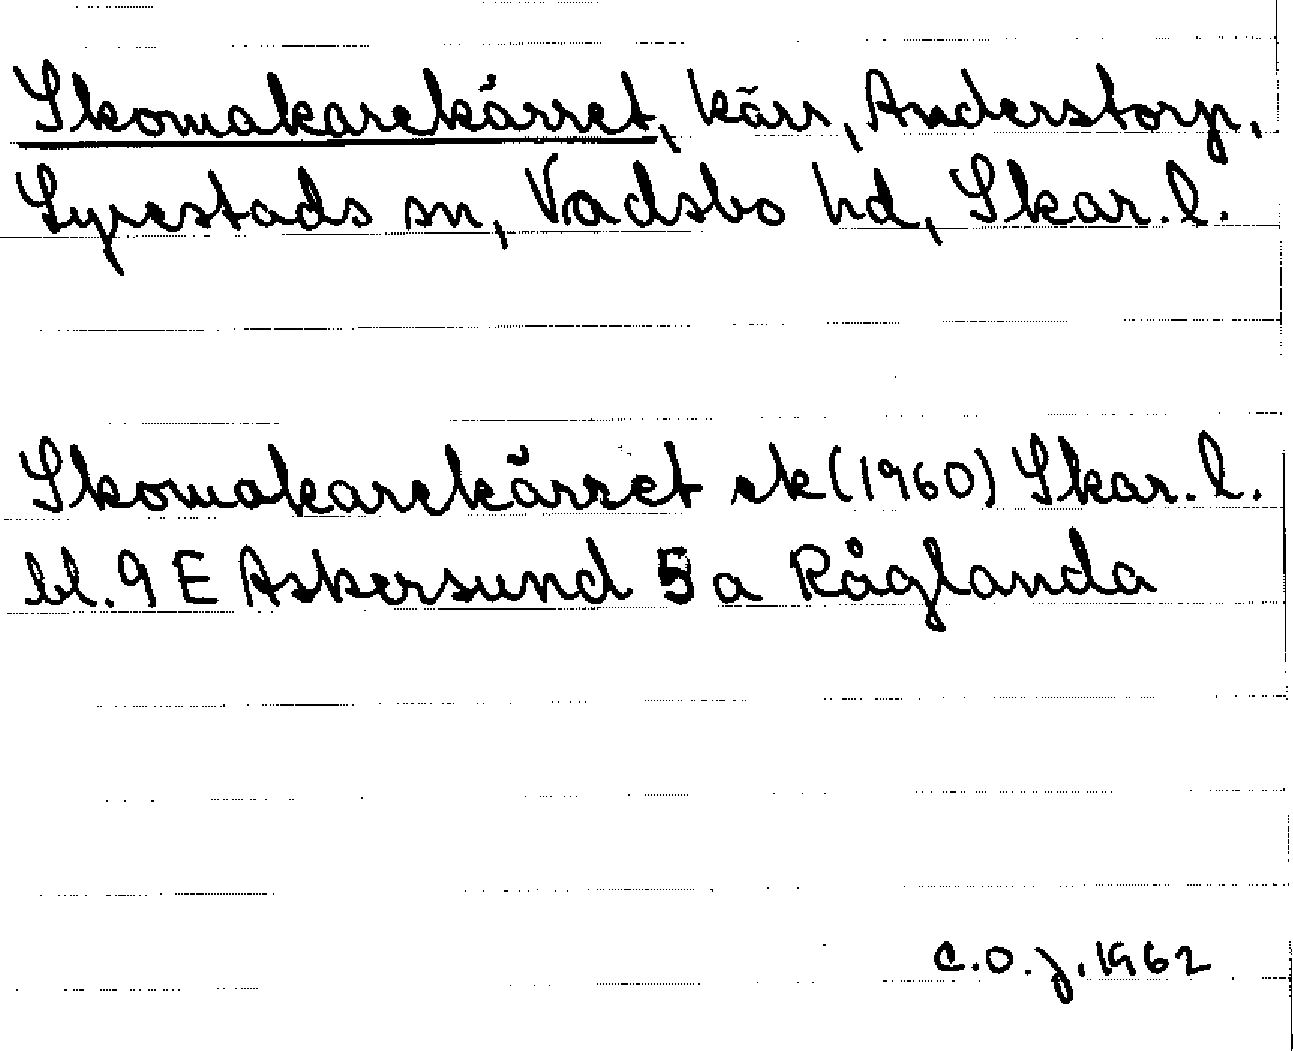 Skomakarekärret, kärr, Anderstorp,
Lyrestads sn, Vadsbo hd, Skar. l.
Skomakarekärret ek (1960) Skar. l.
bl. 9 E Askersund 5 a Råglanda
C.O.J. 1962